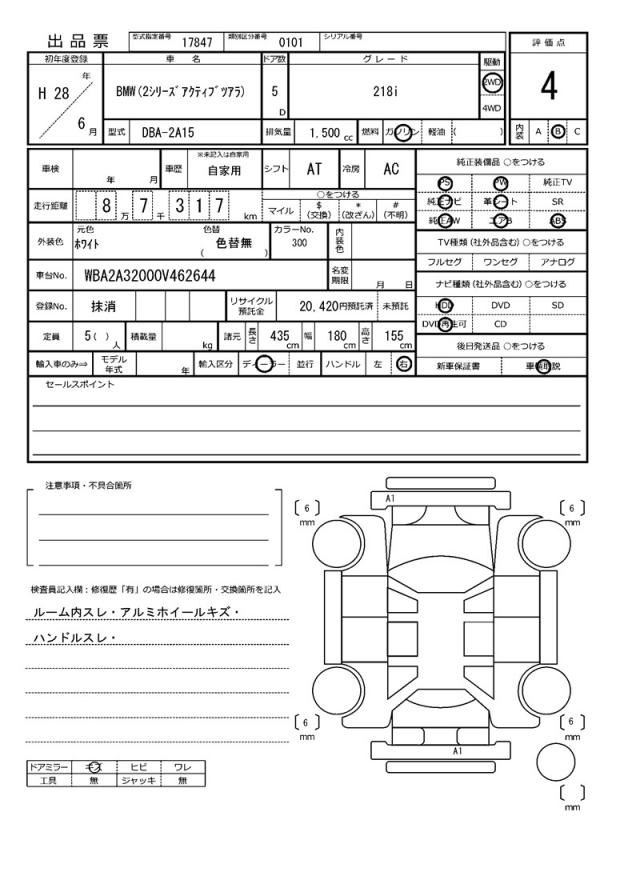 出品票 型式指定番号 17847 類別区分番号 0101 シリアル番号
評価点
4
初年度登録 車名 ドア数 グレード 駆動
H 28 年 6 月 BMW(2シリーズアクティブツアラ) 5 D 218i 2WD 4WD
型式 DBA-2A15 排気量 1.500 cc 燃料 ガソリン 軽油 ( ) 内装 A B C
車検 年 月 車歴 ※未記入は自家用 自家用 シフト AT 冷房 AC
走行距離 8 万 7 千 3 1 7 km ○をつける マイル $ (交換) * (改ざん) # (不明)
外装色 元色 ホワイト 色替 ( 色替無 ) カラーNo. 300 内装色
車台No. WBA2A32000V462644 名変期限 月 日
登録No. 抹消 リサイクル預託金 20,420円預託済 未預託
定員 5( )人 積載量 kg 諸元 長さ 435 cm 幅 180 cm 高さ 155 cm
輸入車のみ⇒ モデル年式 年 輸入区分 ディーラー 並行 ハンドル 左 右
純正装備品 ○をつける
PS PW 純正TV
純正ナビ 革シート SR
純正AW エアB ABS
TV種類(社外品含む)○をつける
フルセグ ワンセグ アナログ
ナビ種類(社外品含む)○をつける
HDD DVD SD
DVD再生可 CD
後日発送品 ○をつける
新車保証書 車輌取説
セールスポイント
注意事項・不具合箇所
検査員記入欄:修復歴「有」の場合は修復箇所・交換箇所を記入
ルーム内スレ・アルミホイールキズ・
ハンドルスレ・
ドアミラー キズ ヒビ ワレ
工具 無 ジャッキ 無
A1
6 mm
6 mm
6 mm
6 mm
A1
mm